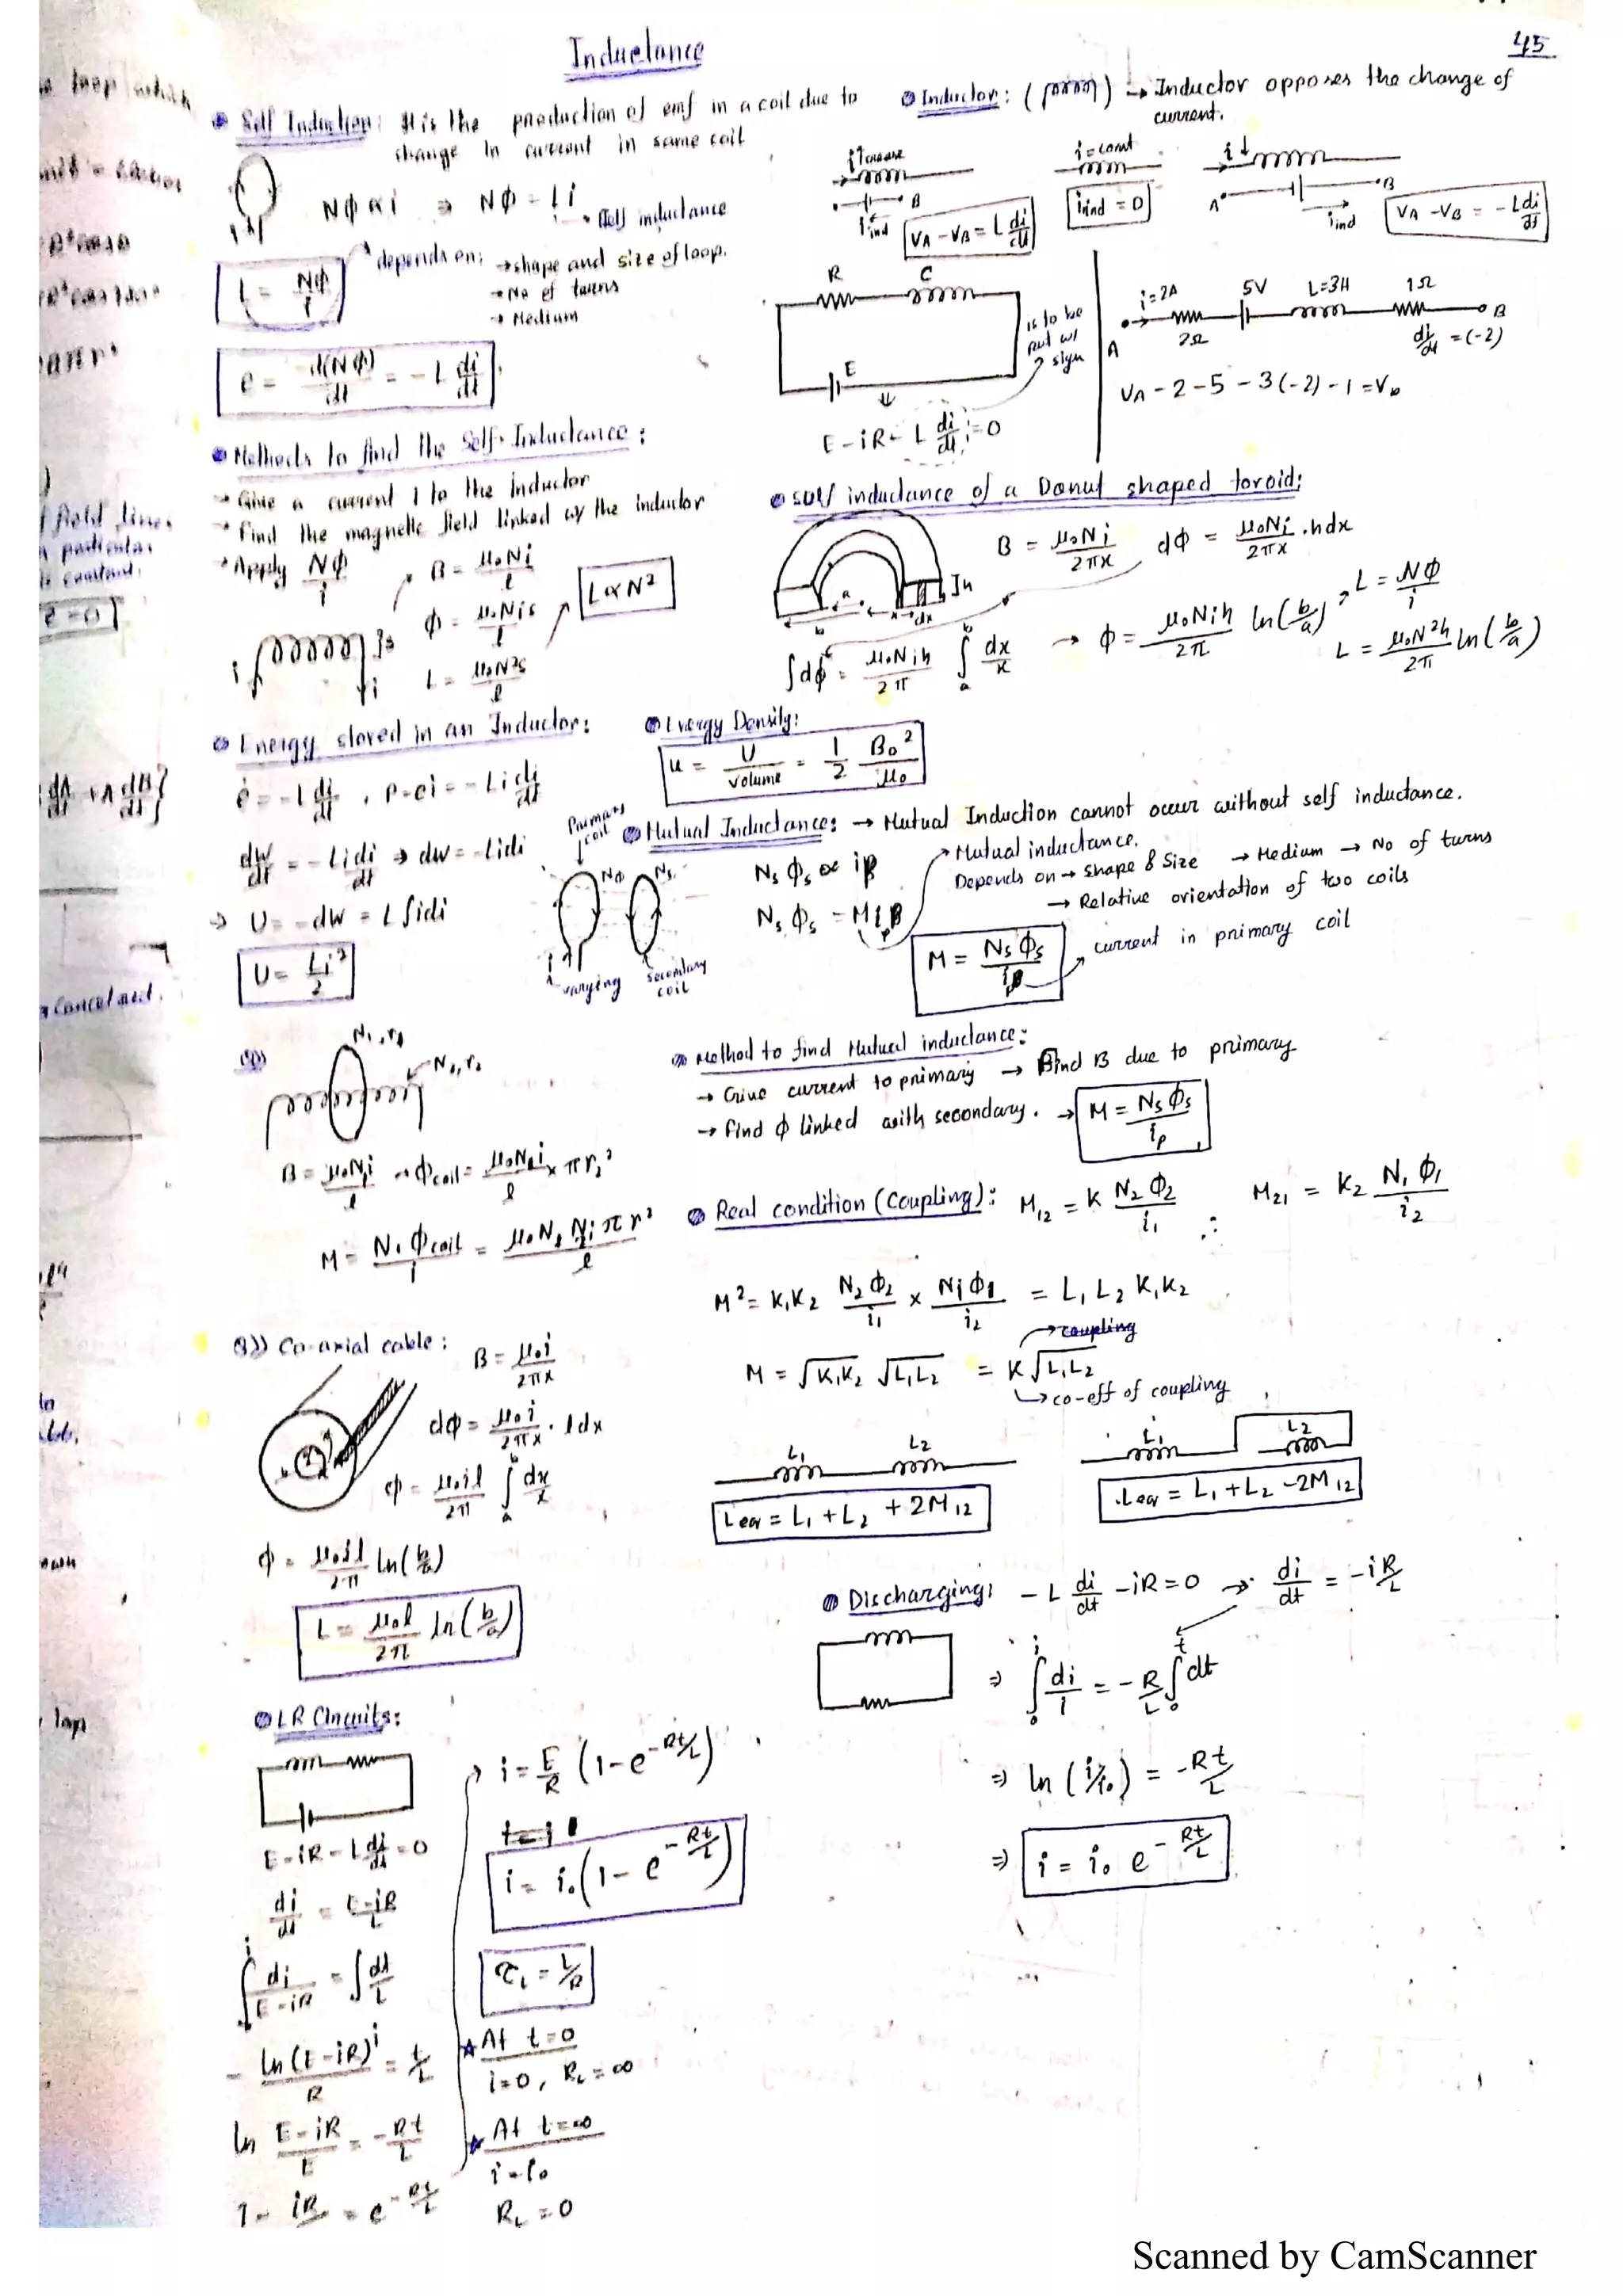 Inductance
45
Self Induction: It is the production of emf in a coil due to
change in current in same coil
Nφ ∝ i ⇒ Nφ = Li
→ Self inductance
L = Nφ/i
depends on: → shape and size of loop.
→ No of turns
→ Medium
e = -d(Nφ)/dt = -L di/dt
Methods to find the Self-Inductance:
→ Give a current i to the inductor
→ Find the magnetic field linked w/ the inductor
→ Apply Nφ/i
B = μ₀Ni/l
φ = μ₀Nis/l
L = μ₀N²s/l
L ∝ N²
Energy stored in an Inductor:
e = -L di/dt , P = ei = -Li di/dt
dw/dt = -Li di/dt → dw = -Lidi
⇒ U = -dw = L∫idi
U = Li²/2
Energy Density:
u = U/volume = 1/2 B₀²/μ₀
Inductor: → Inductor opposes the change of
current.
i↑ increase
B
i ind
VA - VB = L di/dt
i = const
i ind = 0
i↓
A B
i ind
VA - VB = -L di/dt
R C
E
is to be
put w/
sign
E - iR - L di/dt = 0
i=2A 5V L=3H 1Ω
A 2Ω B
di/dt = (-2)
VA - 2 - 5 - 3(-2) - 1 = Vb
Self inductance of a Donut shaped toroid:
B = μ₀Ni/2πx dφ = μ₀Ni/2πx .hdx
∫dφ = μ₀Nih/2π ∫ₐᵇ dx/x → φ = μ₀Nih/2π ln(b/a)
L = Nφ/i
L = μ₀N²h/2π ln(b/a)
Mutual Inductance: → Mutual Induction cannot occur without self inductance.
Primary
coil
Np Ns
i varying
Secondary
coil
Ns φs ∝ ip
Ns φs = M ip
Mutual inductance.
Depends on → Shape & Size → Medium → No of turns
→ Relative orientation of two coils
M = Ns φs/ip
current in primary coil
Q))
N₁, r₁
N₂, r₂
B = μ₀Ni/l → φcoil = μ₀N₂i/l × πr₁²
M = N₁φcoil/i = μ₀N₁N₂πr²/l
Method to find Mutual inductance:
→ Give current to primary → Find B due to primary
→ Find φ linked with secondary. → M = Ns φs/ip
Real condition (Coupling): M₁₂ = K N₂φ₂/i₁ ∴ M₂₁ = K₂ N₁φ₁/i₂
M² = K₁K₂ N₂φ₂/i₁ × N₁φ₁/i₂ = L₁L₂K₁K₂
→ coupling
M = √K₁K₂ √L₁L₂ = K√L₁L₂
→ co-eff of coupling
L₁ L₂
Leq = L₁ + L₂ + 2M₁₂
L₁ L₂
Leq = L₁ + L₂ - 2M₁₂
Q)) Co-axial cable:
B = μ₀i/2πx
dφ = μ₀i/2πx . ldx
φ = μ₀il/2π ∫ₐᵇ dx/x
φ = μ₀il/2π ln(b/a)
L = μ₀l/2π ln(b/a)
LR Circuits:
E - iR - L di/dt = 0
di/dt = E-iR/L
∫ di/E-iR = ∫ dt/L
- ln(E-iR)ⁱ/R = t/L
ln E-iR/E = -Rt/L
1 - iR/E = e^-Rt/L
→ i = E/R (1 - e^-Rt/L)
i = i₀(1 - e^-Rt/L)
τL = L/R
★ At t=0
i=0, RL=∞
★ At t=∞
i=i₀
RL=0
Discharging: -L di/dt - iR = 0 → di/dt = -iR/L
⇒ ∫ di/i = -R/L ∫₀ᵗ dt
⇒ ln(i/i₀) = -Rt/L
⇒ i = i₀ e^-Rt/L
Scanned by CamScanner